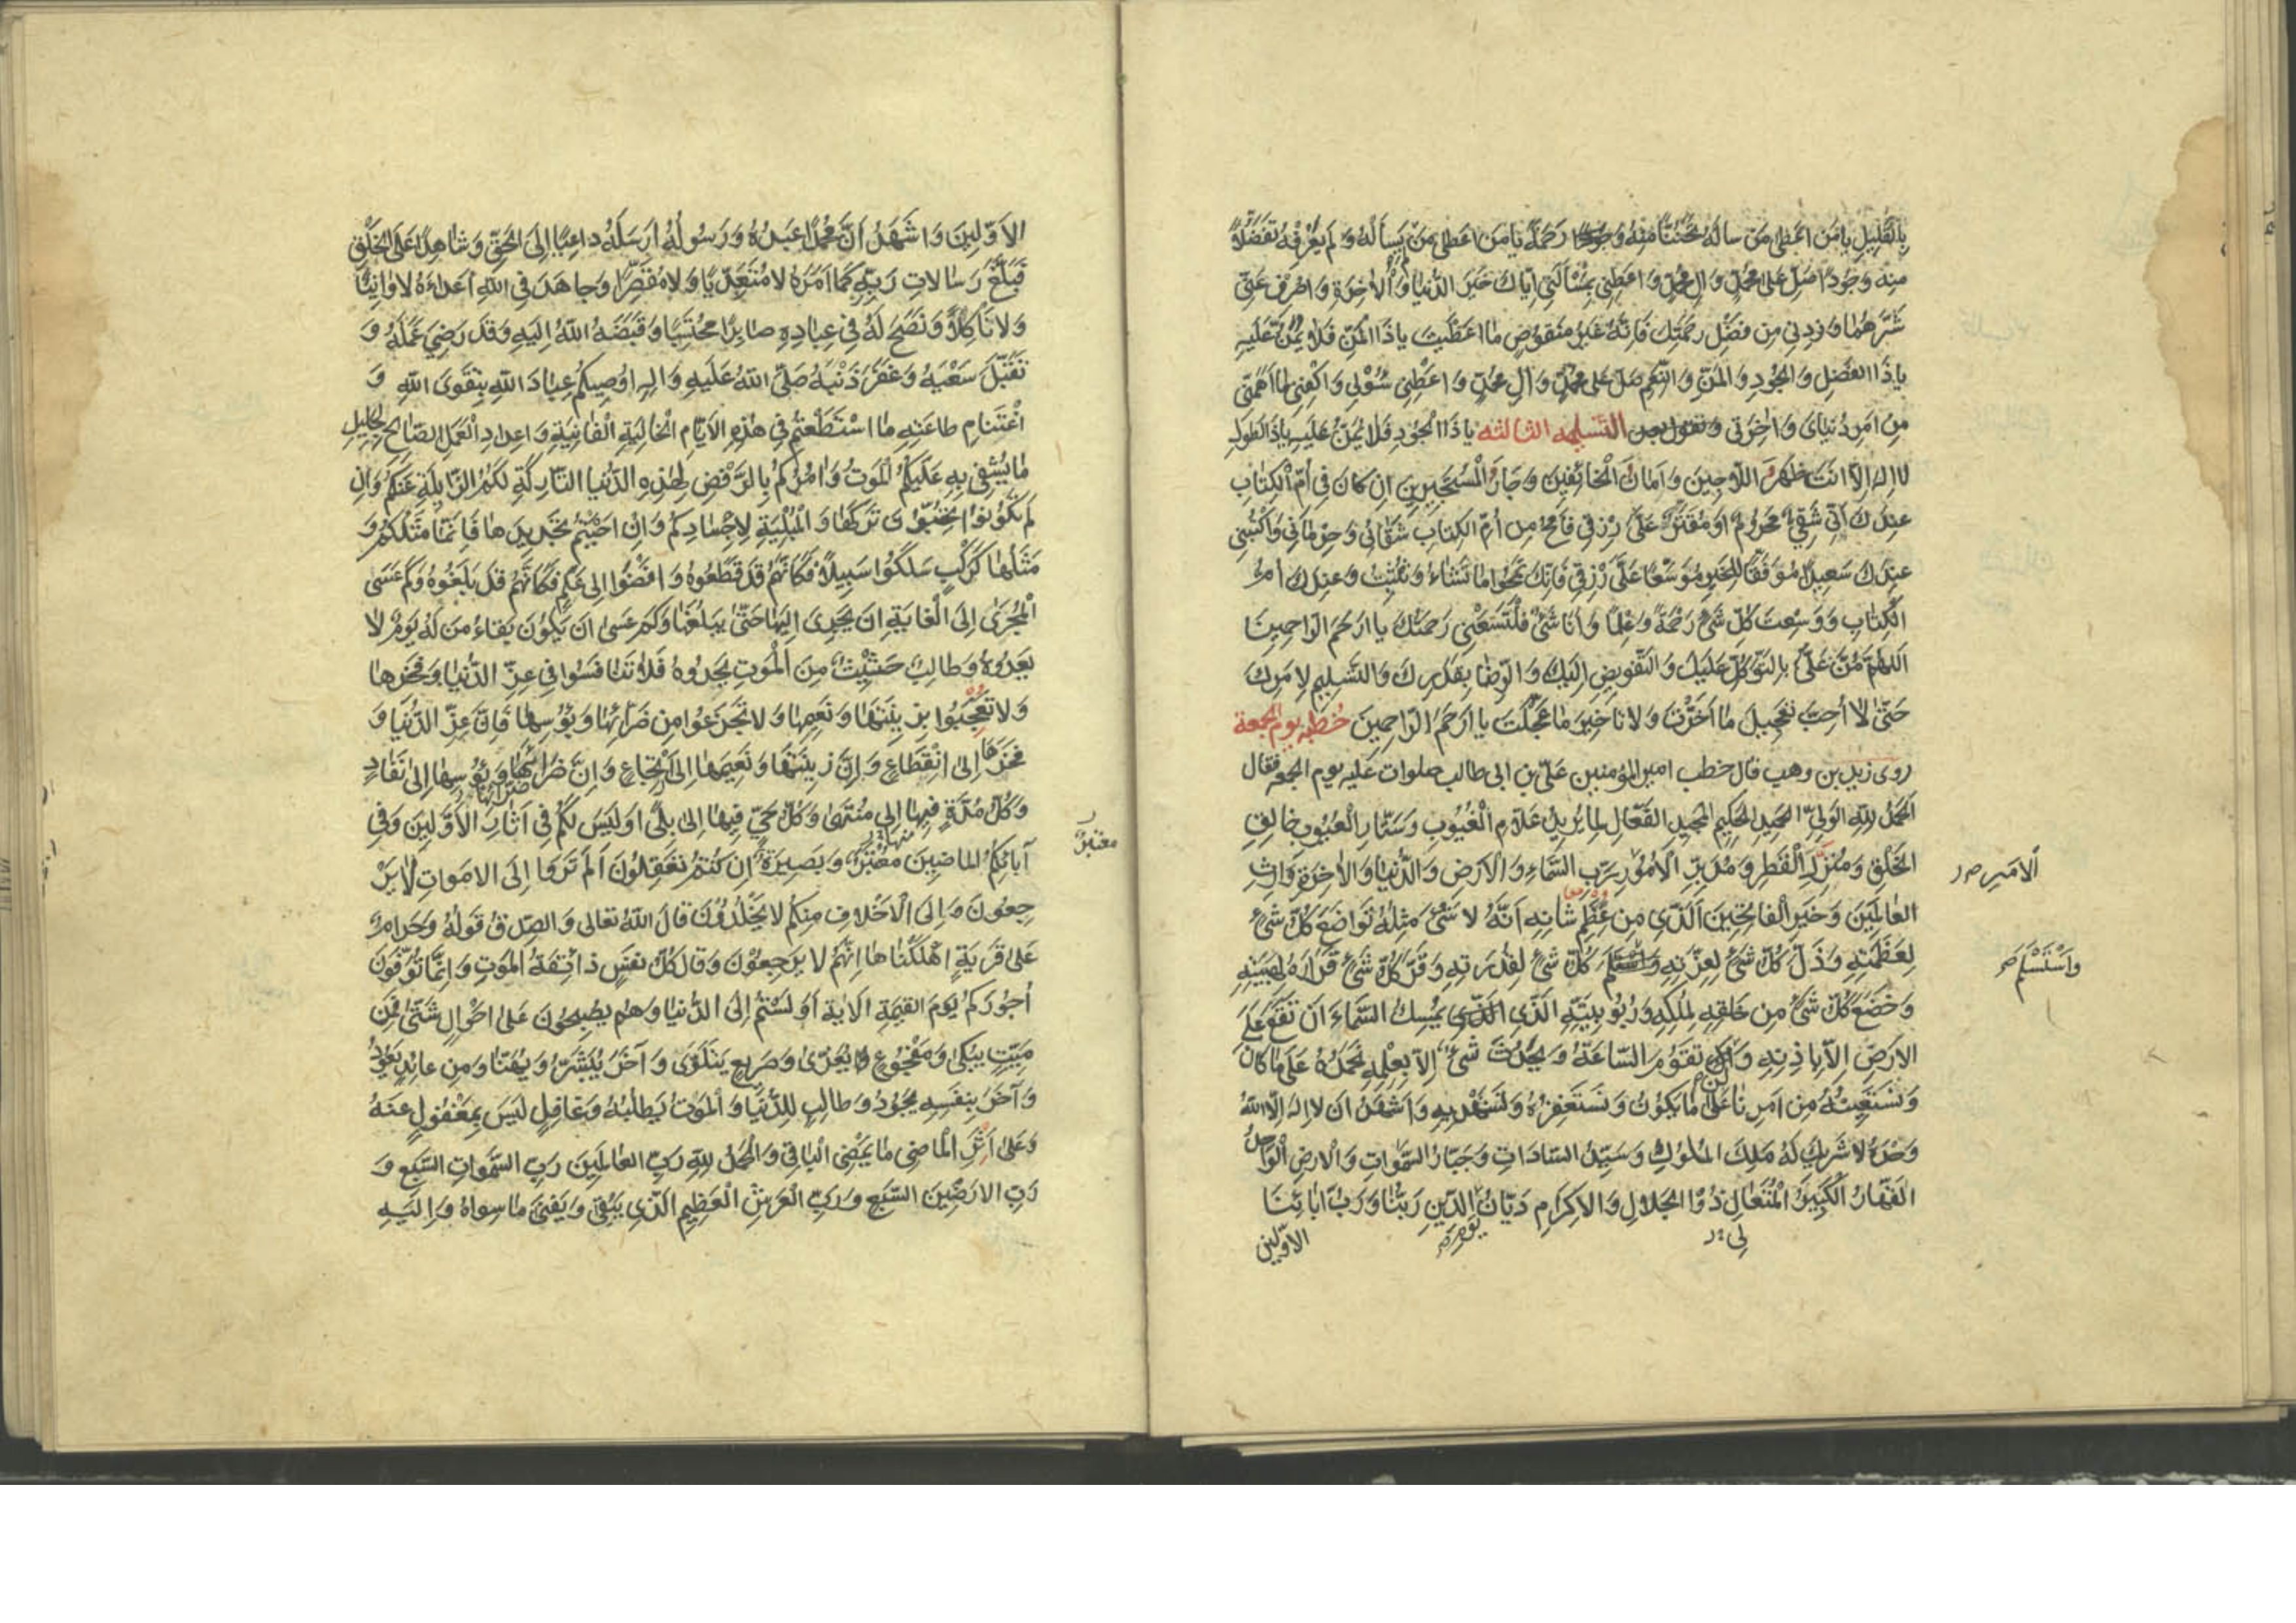 بِالْقَلِيلِ يا مَن اَعطى مَن سالَهُ تَحَنُّنًا مِنهُ وَ رَحمَةً يا مَن اعطى مَن لَم يَسأَلهُ وَلَم يَعْرِفْهُ تَفَضُّلًا
مِنه وَجُودًا صَلِّ عَلى محمّدٍ وَالِ محمّدٍ وَ اعطِنى بِمَسْأَلَتى اِيّاك خَيرَ الدُّنيا وَ الْاخِرَةِ وَاصرِف عَنّى
شَرَّهُما وَ زدنى مِن فَضلِ رحمَتِك فَاِنَّهُ غَيرُ مَنقُوصٍ ما اعطَيتَ ياذَا المَنِّ فَلا يُمَنُّ عَلَيهِ
ياذَا الفَضلِ وَ الجُودِ وَ المَنِّ وَ النِّعَمِ صَلِّ عَلى محمّدٍ وَ الِ محمّدٍ وَ اعطِنى سُؤْلى وَ اكفِنى ما اَهَمَّنى
مِن اَمرِ دُنياىَ وَ اخِرَتى وَ تقول بعد التّسليمه الثالثه ياذَا الجُودِ فَلا يُمَنُّ عَلَيهِ ياذَ الطَولِ
لا اِلهَ اِلّا انتَ ظَهرَ اللّاجِينَ وَ اَمانَ الْخائِفينَ وَ جارَ الْمُسْتَجيرينَ ان كانَ فى اُمِّ الْكِتابِ
عِندَكَ اَنّى شَقِىٌّ مَحرُومٌ اَو مُقَتَّرٌ عَلَىَّ رِزقى فَامحُ مِن اُمِّ الكِتابِ شَقائى وَ حِرْمانى وَ اكتُبنى
عِندَكَ سَعيدًا مُوَفَّقًا لِلخَيرِ مُوَسَّعًا عَلَىَّ رِزْقى فَاِنَّكَ تَمحُوا ما تَشاءُ وَ تُثْبِتُ وَ عِندَكَ اُمُّ
الكِتابِ وَ وَسِعتَ كُلَّ شَىءٍ رَحْمَةً وَ عِلمًا وَ اَنا شَىءٌ فَلْتَسَعْنى رَحمَتُكَ يا ارحَمَ الرّاحِمينَ
اللهُمَّ مُنَّ عَلَىَّ بِالتَّوَكُّلِ عَلَيكَ وَ التَّفويضِ اِلَيكَ وَ الرِّضا بِقَدَرِكَ وَ التَّسليمِ لِامرِكَ
حَتّى لا اُحِبَّ تَعجيلَ ما اَخَّرْتَ وَ لا تَاخيرَ ما عَجَّلتَ يا ارَحَمَ الرّاحِمينَ خُطبه يوم الجمعة
روى زيد بن وهب قال خطب امير المؤمنين علىّ بن ابى طالب صلوات عليه يوم الجمعه فقال
اَلحَمدُ لِلهِ الوَلِىِّ الحَميدِ الحَكيمِ المَجيدِ الفَعّالِ لِما يُريدُ عَلّامِ الْغُيُوبِ وَ سَتّارِ الْعُيُوبِ خالِقِ
الخَلْقِ وَ مُنزِلِ الْقَطرِ وَ مُدَبِّرِ الْاُمُورِ رَبِّ السَّماءِ وَ الْارضِ وَ الدُّنيا وَ الْاخِرَةِ وارِثِ
الامير
العالَمينَ وَ خَيرِ الْفاتِحينَ اَلَّذى مِن عِظَمِ شانِهِ اَنَّهُ لا شَىءَ مِثلُهُ تَواضَعَ كُلُّ شَىءٍ
لِعَظَمَتِهِ وَ ذَلَّ كُلُّ شَىءٍ لِعِزَّتِهِ كُلُّ شَىءٍ لِقُدرَتِهِ وَ قَرَّ كُلُّ شَىءٍ قَرارَهُ لِهَيبَتِهِ
وَاسْتَسْلَم
وَ خَضَعَ كُلُّ شَىءٍ مِن خَلقِهِ لِمُلكِهِ وَ رُبُوبِيَّتِهِ الَّذى يُمسِكُ السَّماءَ ان تَقَعَ عَلَى
الارضِ اِلّا بِاذنِهِ وَ اَن تَقُومَ السّاعَةُ وَ يَحدُثَ شَىءٌ اِلّا بِعِلْمِهِ نَحمَدُهُ عَلى ما كانَ
وَ نَستَعينُهُ مِن اَمرِنا عَلى ما يَكُونُ وَ نَستَغفِرُهُ وَ نَستَهديهِ وَ اَشهَدُ ان لا اِلهَ اِلّا اللهُ
وَحدَهُ لا شَريكَ لَهُ مَلِكُ المُلُوكِ وَ سَيِّدُ السّاداتِ وَ جَبّارُ السَّمواتِ وَ الارضِ الْواحِدُ
القَهّارُ الْكَبيرُ الْمُتَعالِ ذُو الجَلالِ وَ الاِكرامِ دَيّانُ الدّينِ رَبُّنا وَ رَبُّ ابائِنَا
الاوّلين
الاَوَّلينَ وَ اشهَدُ اَنَّ مُحَمَّدًا عَبدُهُ وَ رَسُولُهُ اَرسَلَهُ داعِيًا اِلَى الحَقِّ وَ شاهِدًا عَلَى الخَلْقِ
فَبَلَّغَ رِسالاتِ رَبِّهِ كَما اَمَرَهُ لا مُتَعَدِّيًا وَ لا مُقَصِّرًا وَ جاهَدَ فى اللهِ اَعداءَهُ لا وانِيًا
وَ لا ناكِلًا وَ نَصَحَ لَهُ فى عِبادِهِ صابِرًا مُحتَسِبًا وَ قَبَضَهُ اللهُ اِلَيهِ وَ قَد رَضِىَ عَمَلَهُ وَ
تَقَبَّلَ سَعْيَهُ وَ غَفَرَ ذَنْبَهُ صَلَّى اللهُ عَلَيهِ وَ الِهِ اوُصيكُم عِبادَ اللهِ بِتَقوَى اللهِ وَ
اغْتِنامِ طاعَتِهِ مَا اسْتَطَعْتُم فى هذِهِ الاَيّامِ الْخالِيَةِ الْفانِيَةِ وَ اِعدادِ الْعَمَلِ الصّالِحِ لِجَليلِ
ما يُشْفى بِهِ عَلَيكُم الْمَوتُ وَ امُرُكُم بِالرَّفْضِ لِهذِهِ الدُّنيا التّارِكَةِ لَكُمُ الزّايِلَةِ عَنكُم وَ اِن
لَم تَكُونُوا تَركَها وَ الْمُبْلِيَةِ لِاَجْسادِكُم وَ اِن اَحبَبتُم تَجديدَها فَاِنَّما مَثَلُكُم وَ
مَثَلُها كَرَكْبٍ سَلَكُوا سَبيلًا فَكَانَّهُم قَد قَطَعُوهُ وَ افضَوا اِلى عَلَمٍ فَكَانَّهُم قَد بَلَغُوهُ وَ كَم عَسَى
الْمُجرى اِلَى الْغايَةِ ان يَجرِىَ اِلَيها حَتّى يَبلُغَها وَ كَم عَسى اَن يَكُونَ بَقاءُ مَن لَهُ يَومٌ لا
يَعدُوهُ وَ طالِبٌ حَثيثٌ مِنَ الْمَوتِ يَحدُوهُ فَلا تَنافَسُوا فى عِزِّ الدُّنيا وَ فَخرِها
وَ لا تَعجَبُوا بِزينَتِها وَ نَعيمِها وَ لا تَجزَعُوا مِن ضَرّائِها وَ بُؤسِها فَاِنَّ عِزَّ الدُّنيا وَ
فَخرَها اِلى انْقِطاعٍ وَ اِنَّ زينَتَها وَ نَعيمَها اِلَى وَ اِنَّ ضَرّائَها وَ بُؤسَها اِلى نَفادٍ
وَ كُلُّ مُدَّةٍ فيها اِلى مُنتَهى وَ كُلُّ حَىٍّ فيها اِلى بِلًى اَوَ لَيسَ لَكُم فى اثارِ الاَوَّلينَ وَ فى
ابائِكُمُ الماضينَ مُعْتَبَرٌ وَ بَصيرَةٌ اِن كُنتُم تَعقِلُونَ اَلَم تَرَوا اِلَى الامَواتِ لا يَر
معتبر
جِعُونَ وَ اِلَى الْاَخلافِ مِنكُم لا يَخْلُدُونَ قالَ اللهُ تعالى وَ الصِّدقُ قَولُهُ وَ حَرامٌ
عَلى قَريَةٍ اهْلَكْناها انَّهُم لا يَرجِعُونَ وَ قالَ كُلُّ نَفسٍ ذائِقَةُ الْمَوتِ وَ اِنَّما تُوَفَّونَ
اُجُورَكُم يَومَ القِيمَةِ الايَة اَوَ لَستُم اِلَى الدُّنيا وَ هُم يُصبِحُونَ عَلى احوالٍ شَتّى فَمِن
مَيِّتٍ يُبكى وَ مَفْجُوعٍ يُعَزّى وَ صَريعٍ يَتَلَوّى وَ آخَرُ يُبَشَّرُ وَ يُهَنّا وَ مِن عائِدٍ يَعُودُ
وَ آخَرُ بِنَفسِهِ يَجُودُ وَ طالِبٍ لِلدُّنيا وَ الْمَوتُ يَطلُبُهُ وَ غافِلٍ لَيسَ بِمَغْفُولٍ عَنهُ
وَ عَلى اَثَرِ الْماضى ما يَمضى الْباقى وَ الحَمدُ لِلهِ رَبِّ العالَمينَ رَبِّ السَّمواتِ السَّبعِ وَ
رَبِّ الارَضينَ السَّبعِ وَ رَبِّ الْعَرشِ الْعَظيمِ الَّذى يَبْقى وَ يَفنى ما سِواهُ وَ اِلَيهِ